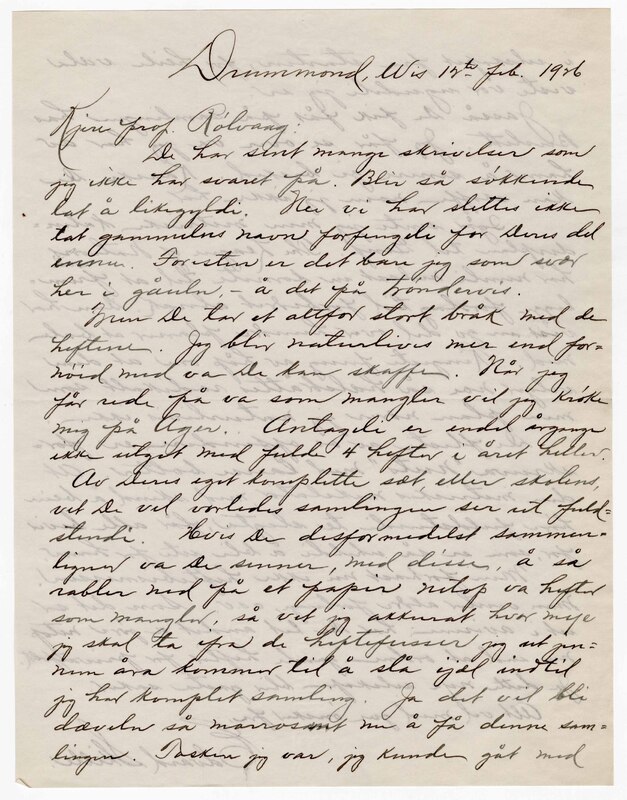 Drummond, Wis 12th feb. 1926
Kjere prof. Rölvaag:
De har sent mange skrivelser som
jeg ikke har svaret på. Blir så søkkende
lat å likegyldi. Nei vi har slettes ikke
tat gammelens navn forfengeli for Deres del
ennu. Foresten er det bare jeg som
her i gåuln, - å det på trøndervis.
Men De har et altfor stort bråk med de
heftene. Jeg blir naturlivis mer end for=
nöid med va De kan skaffe. Når jeg
får rede på va som mangler vil jeg kröke
mig på Ager. Antageli er endel årgange
ikke utgit med fulde 4 hefter i året heller.
Av Deres eget komplette sæt, eller skolens,
vet De vel vorledes samlingen ser ut fuld=
stendi. Hvis De desformedelst sammen=
ligner va De senner, med disse, å så
rabler ned på et papir netop va hefter
som mangler, så vet jeg akkurat hvor meje
jeg skal ta fra de jeg ut jen=
nem åra kommer til å slå ijæl indtil
jeg har komplet samling. Ja det vil bli
dæveln så morrosamt me å få denne sam=
lingen. Tænker jeg var, jeg kunde gåt med